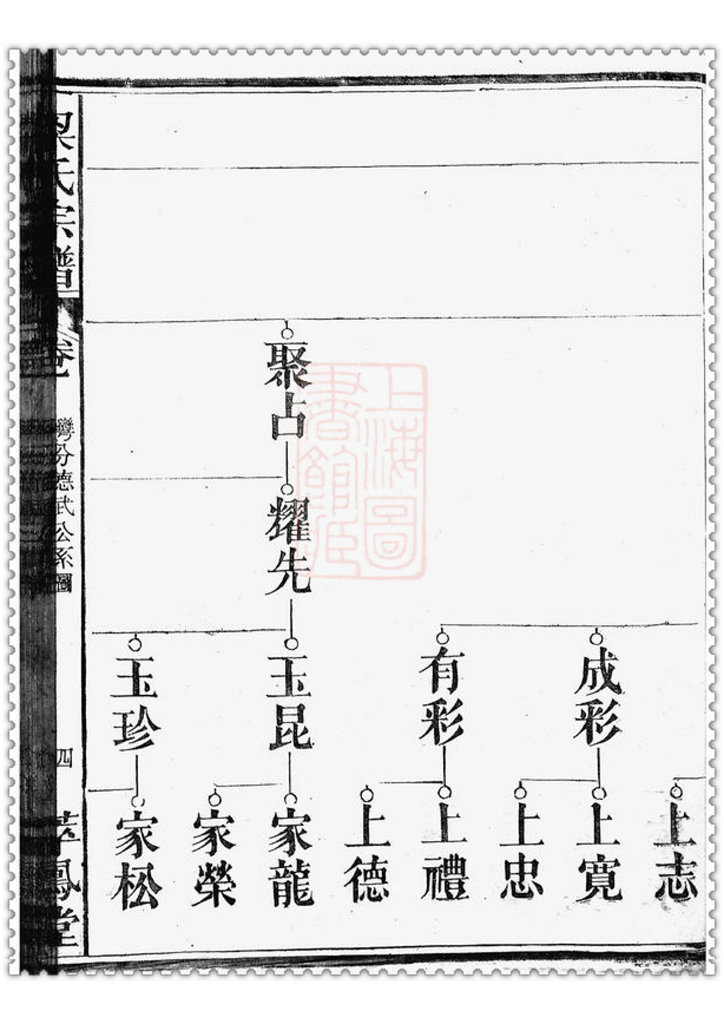 上志
成彩
上寬
上忠
有彩
上禮
上德
聚占
耀先
玉昆
家龍
家榮
玉珍
家松
梁氏宗譜
卷一
灣分德武公系圖
四
鳳堂
上海圖
書館